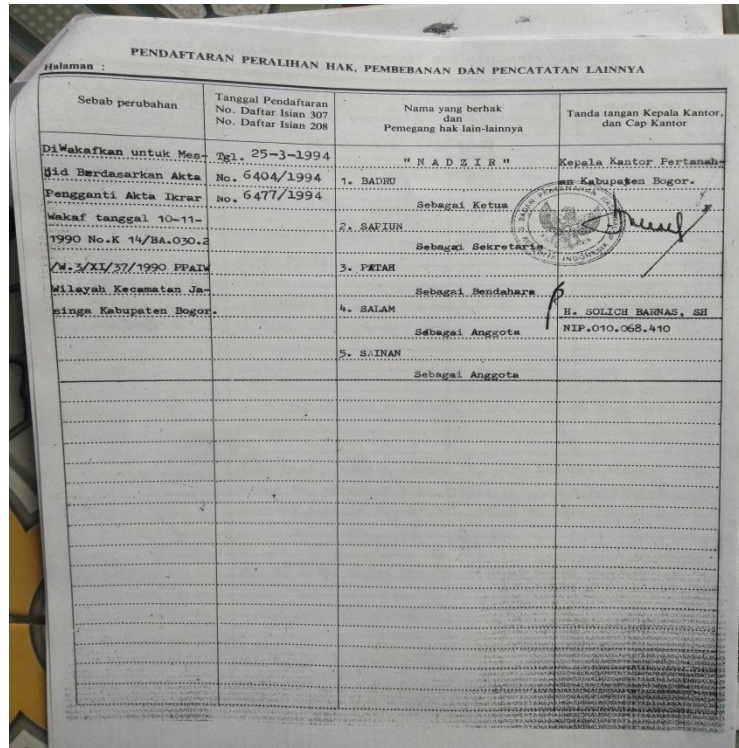 PENDAFTARAN PERALIHAN HAK, PEMBEBANAN DAN PENCATATAN LAINNYA
Halaman :
Sebab perubahan
Tanggal Pendaftaran
No. Daftar Isian 307
No. Daftar Isian 208
Nama yang berhak
dan
Pemegang hak lain-lainnya
Tanda tangan Kepala Kantor,
dan Cap Kantor
DiWakafkan untuk Mes-
djid Berdasarkan Akta
Pengganti Akta Ikrar
Wakaf tanggal 10-11-
1990 No.K 14/BA.030.2
/W.3/XI/37/1990 PPAIW
Wilayah Kecamatan Ja-
singa Kabupaten Bogor.
Tgl. 25-3-1994
No. 6404/1994
No. 6477/1994
" N A D Z I R "
1. BADRU
Sebagai Ketua
2. SAPIUN
Sebagai Sekretaris
3. PATAH
Sebagai Bendahara
4. SALAM
Sebagai Anggota
5. SAINAN
Sebagai Anggota
Kepala Kantor Pertanah-
an Kabupaten Bogor.
BADAN PERTANAHAN NASIONAL
REPUBLIK INDONESIA
H. SOLICH BARNAS, SH
NIP.010.068.410